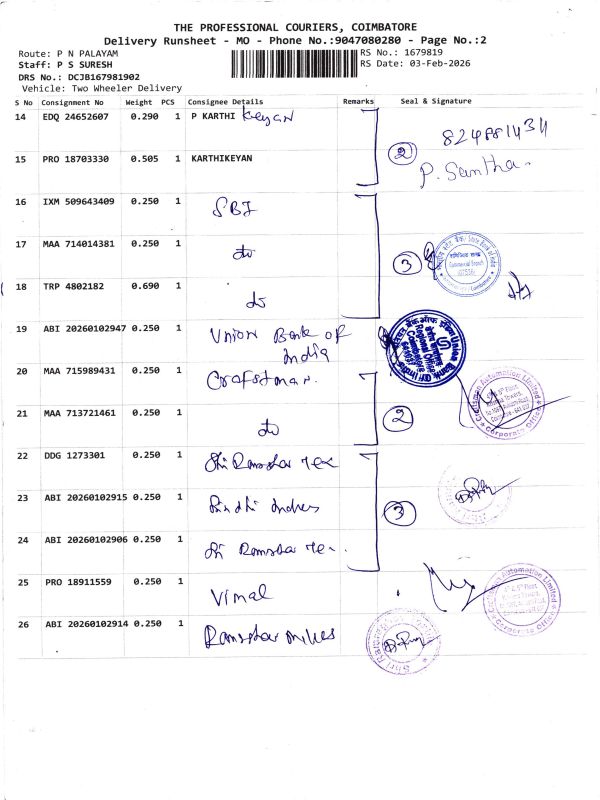 THE PROFESSIONAL COURIERS, COIMBATORE
Delivery Runsheet - MO - Phone No.:9047080280 - Page No.:2
Route: P N PALAYAM
RS No.: 1679819
Staff: P S SURESH
RS Date: 03-Feb-2026
DRS No.: DCJB167981902
Vehicle: Two Wheeler Delivery
S No Consignment No Weight PCS Consignee Details Remarks Seal & Signature
14 EDQ 24652607 0.290 1 P KARTHI Keyan
15 PRO 18703330 0.505 1 KARTHIKEYAN
2
P. Santha.
16 IXM 509643409 0.250 1 SBI
17 MAA 714014381 0.250 1 do
3
State Bank of India
Commercial Branch
18 TRP 4802182 0.690 1 do
19 ABI 20260102947 0.250 1 Union Bank of
India
Union Bank Of India
Regional Office
20 MAA 715989431 0.250 1 Craftsman.
Craftsman Automation Limited
Corporate Office
21 MAA 713721461 0.250 1 do
2
22 DDG 1273301 0.250 1 Shri Ramsker Tex
23 ABI 20260102915 0.250 1
3
24 ABI 20260102906 0.250 1 Tex.
25 PRO 18911559 0.250 1 Vimal
Craftsman Automation Limited
4th & 5th Floor
Corporate Office
26 ABI 20260102914 0.250 1
Shri